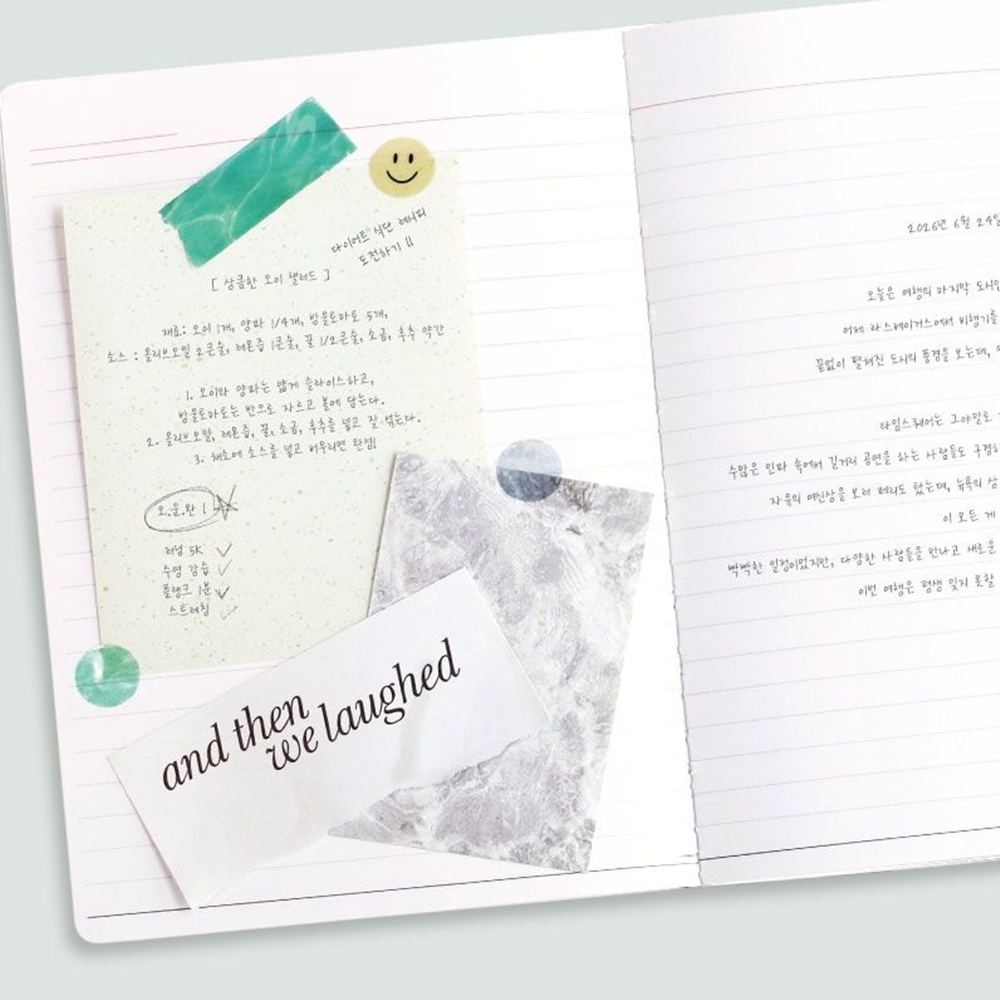 다이어트 식단 레시피
도전하기 !!
[ 상큼한 오이 샐러드 ]
재료: 오이 1개, 양파 1/4개, 방울토마토 5개,
소스 : 올리브오일 2큰술, 레몬즙 1큰술, 꿀 1/2큰술, 소금, 후추 약간
1. 오이와 양파는 얇게 슬라이스하고,
방울토마토는 반으로 자르고 볼에 담는다.
2. 올리브오일, 레몬즙, 꿀, 소금, 후추를 넣고 잘 섞는다.
3. 채소에 소스를 넣고 버무리면 완성!
오.운.완 !
러닝 5K
수영 강습
플랭크 1분
스트레칭
and then
we laughed
2026년 6월 24일
오늘은 여행의 마지막 도시인
어제 라스베이거스에서 비행기를
끝없이 펼쳐진 도시의 풍경을 보는데,
타임스퀘어는 그야말로
수많은 인파 속에서 길거리 공연을 하는 사람들도 구경하
자유의 여신상을 보러 페리도 탔는데, 뉴욕의 상
이 모든 게
빡빡한 일정이었지만, 다양한 사람들을 만나고 새로운
이번 여행은 평생 잊지 못할